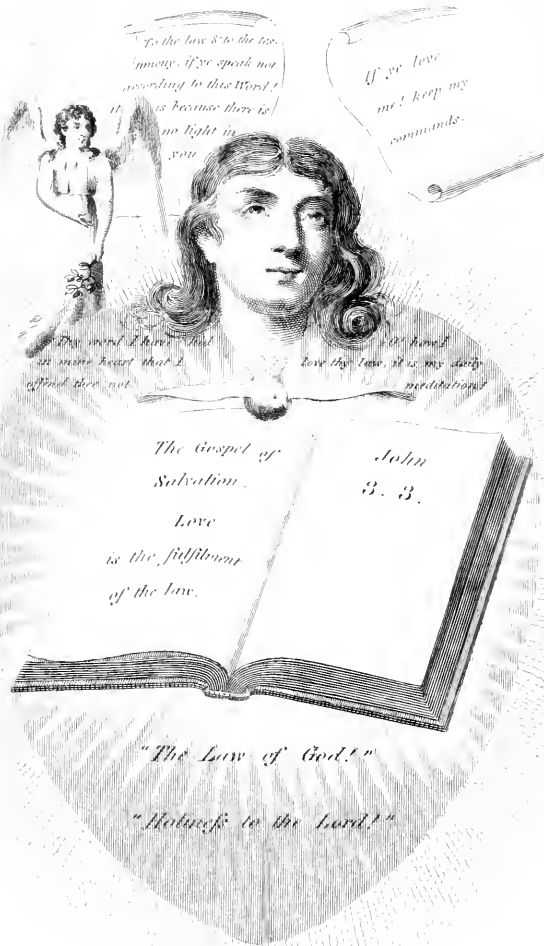 To the law & to the tes-
timony, if ye speak not
according to this Word!
it is because there is
no light in
you
If ye love
me! keep my
commands.
Thy word I have hid
in mine heart that I
offend thee not.
O! how I
love thy law, it is my daily
meditation!
The Gospel of
Salvation.
Love
is the fulfilment
of the law.
John
3. 3.
"The Law of God!"
"Holineſs to the Lord!"